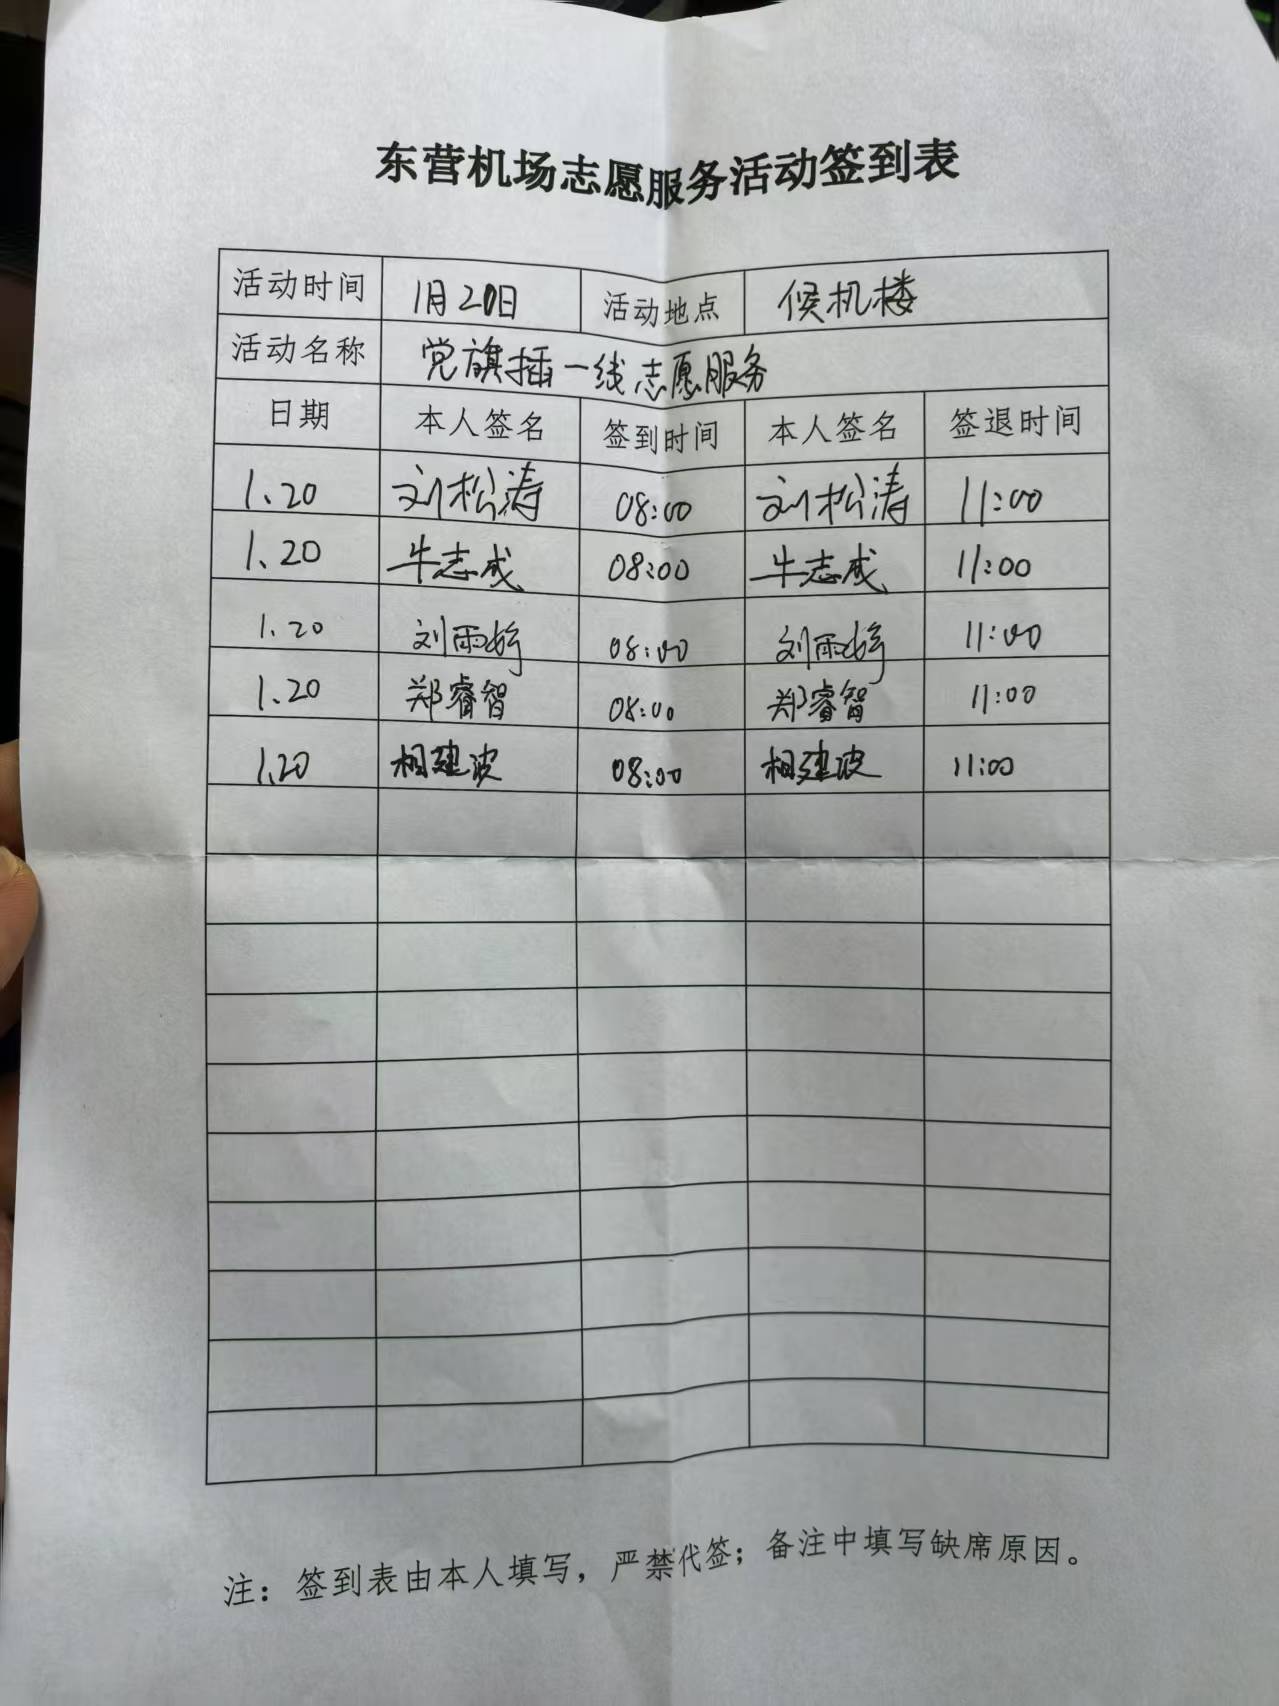 东营机场志愿服务活动签到表
活动时间 1月20日 活动地点 候机楼
活动名称 党旗插一线志愿服务
日期 本人签名 签到时间 本人签名 签退时间
1.20 刘松涛 08:00 刘松涛 11:00
1.20 牛志成 08:00 牛志成 11:00
1.20 刘雨婷 08:00 刘雨婷 11:00
1.20 郑睿智 08:00 郑睿智 11:00
1.20 相建波 08:00 相建波 11:00
注：签到表由本人填写，严禁代签；备注中填写缺席原因。